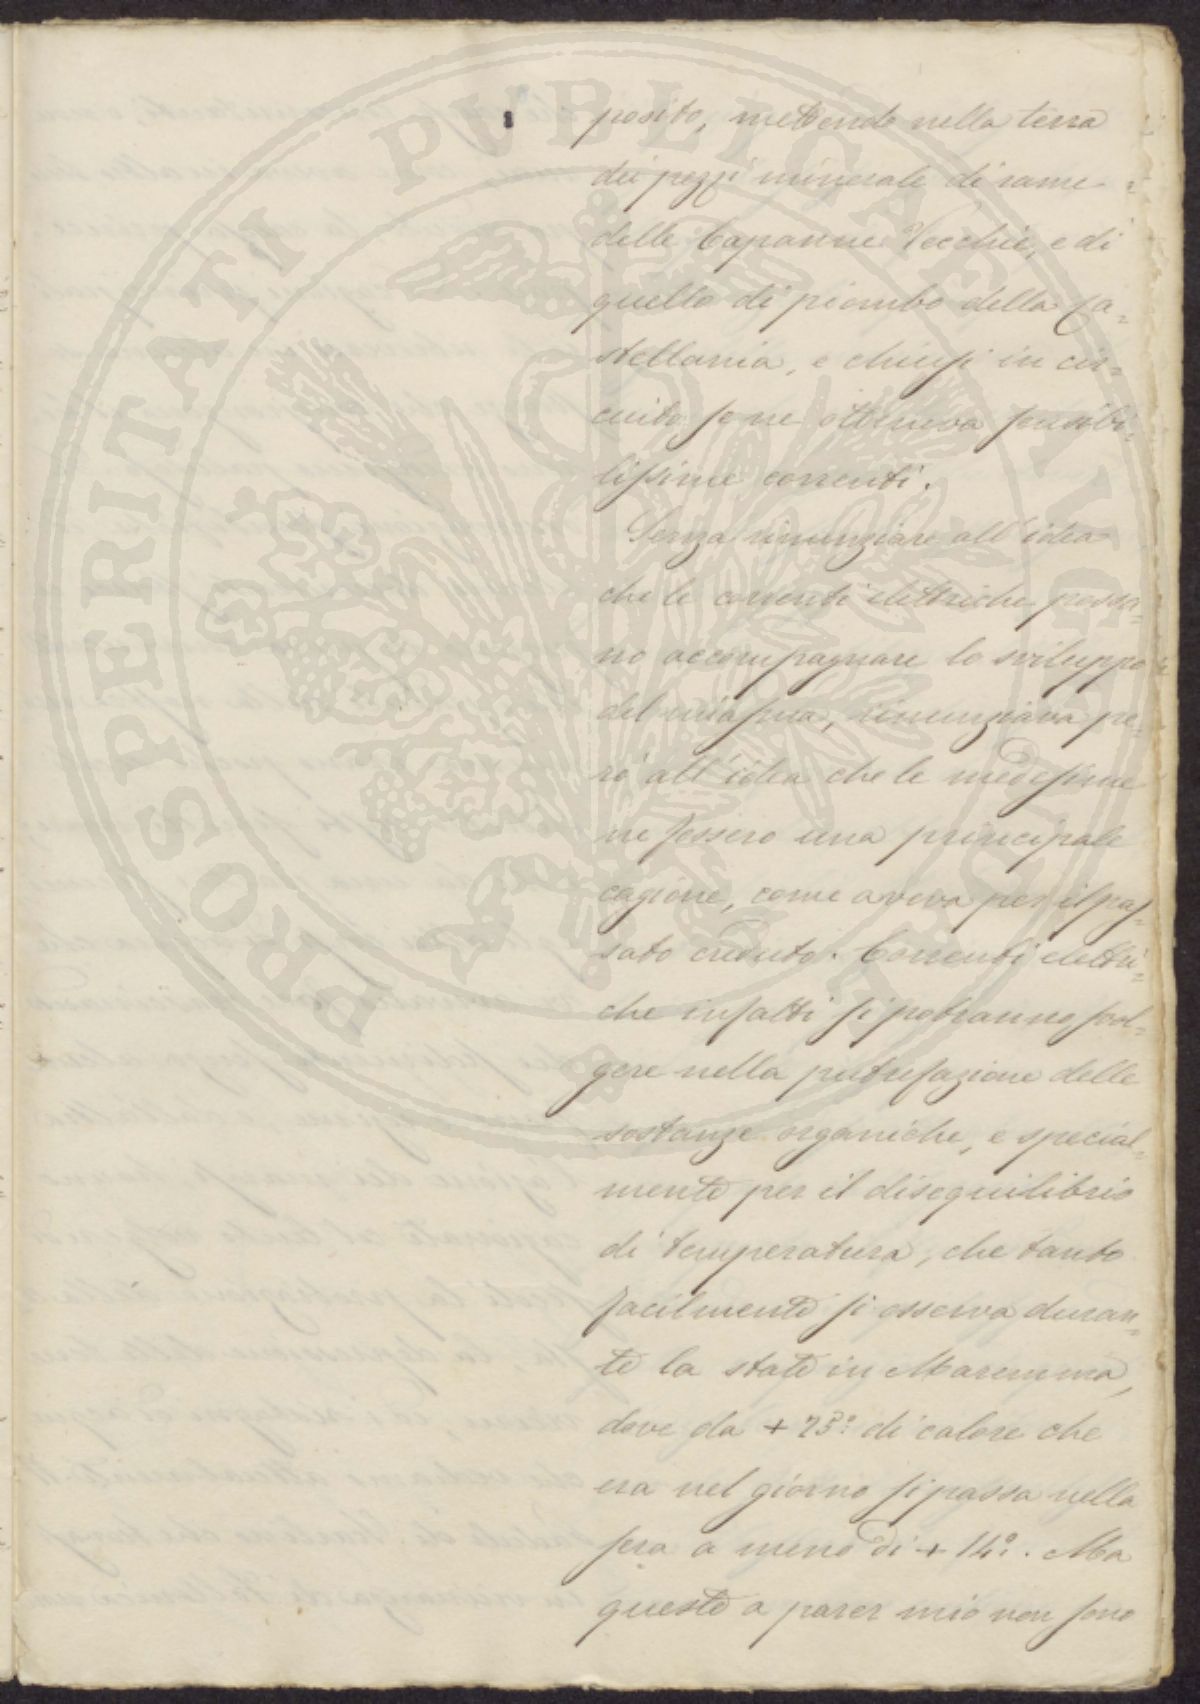 posito, mettendo nella terra
dei pezzi minerale di rame
delle Capanne Vecchie, e di
quello di piombo della Ca=
stellania, e chiusi in cir=
cuito se ne otteneva sensibi=
lissime correnti.
Senza rinunziare all'idea
che le correnti elettriche possa=
no accompagnare lo sviluppo
del miasma, rinunziava pe=
rò all'idea che le medesime
ne fossero una principale
cagione, come aveva per il pas=
sato creduto. Correnti elettri=
che infatti si potranno svol=
gere nella putrefazione delle
sostanze organiche, e special=
mente per il disequilibrio
di temperatura, che tanto
facilmente si osserva duran=
te la state in Maremma,
dove da + 25° di calore che
era nel giorno si passa nella
sera a meno di + 14°. Ma
queste a parer mio non sono
PROSPERITATI PUBLICAE AUGENDAE